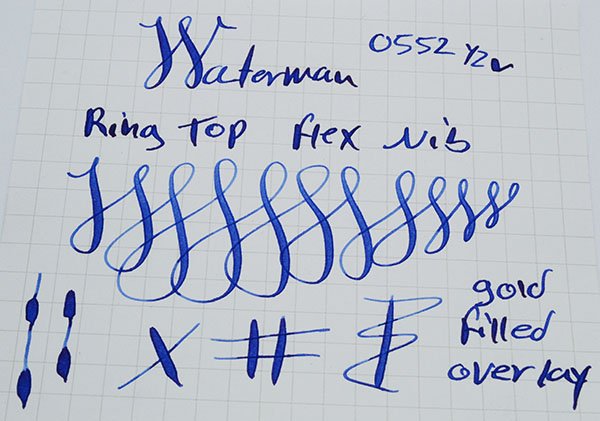 Waterman 0552 1/2 v
Ring Top flex Nib
X #
gold
filled
overlay